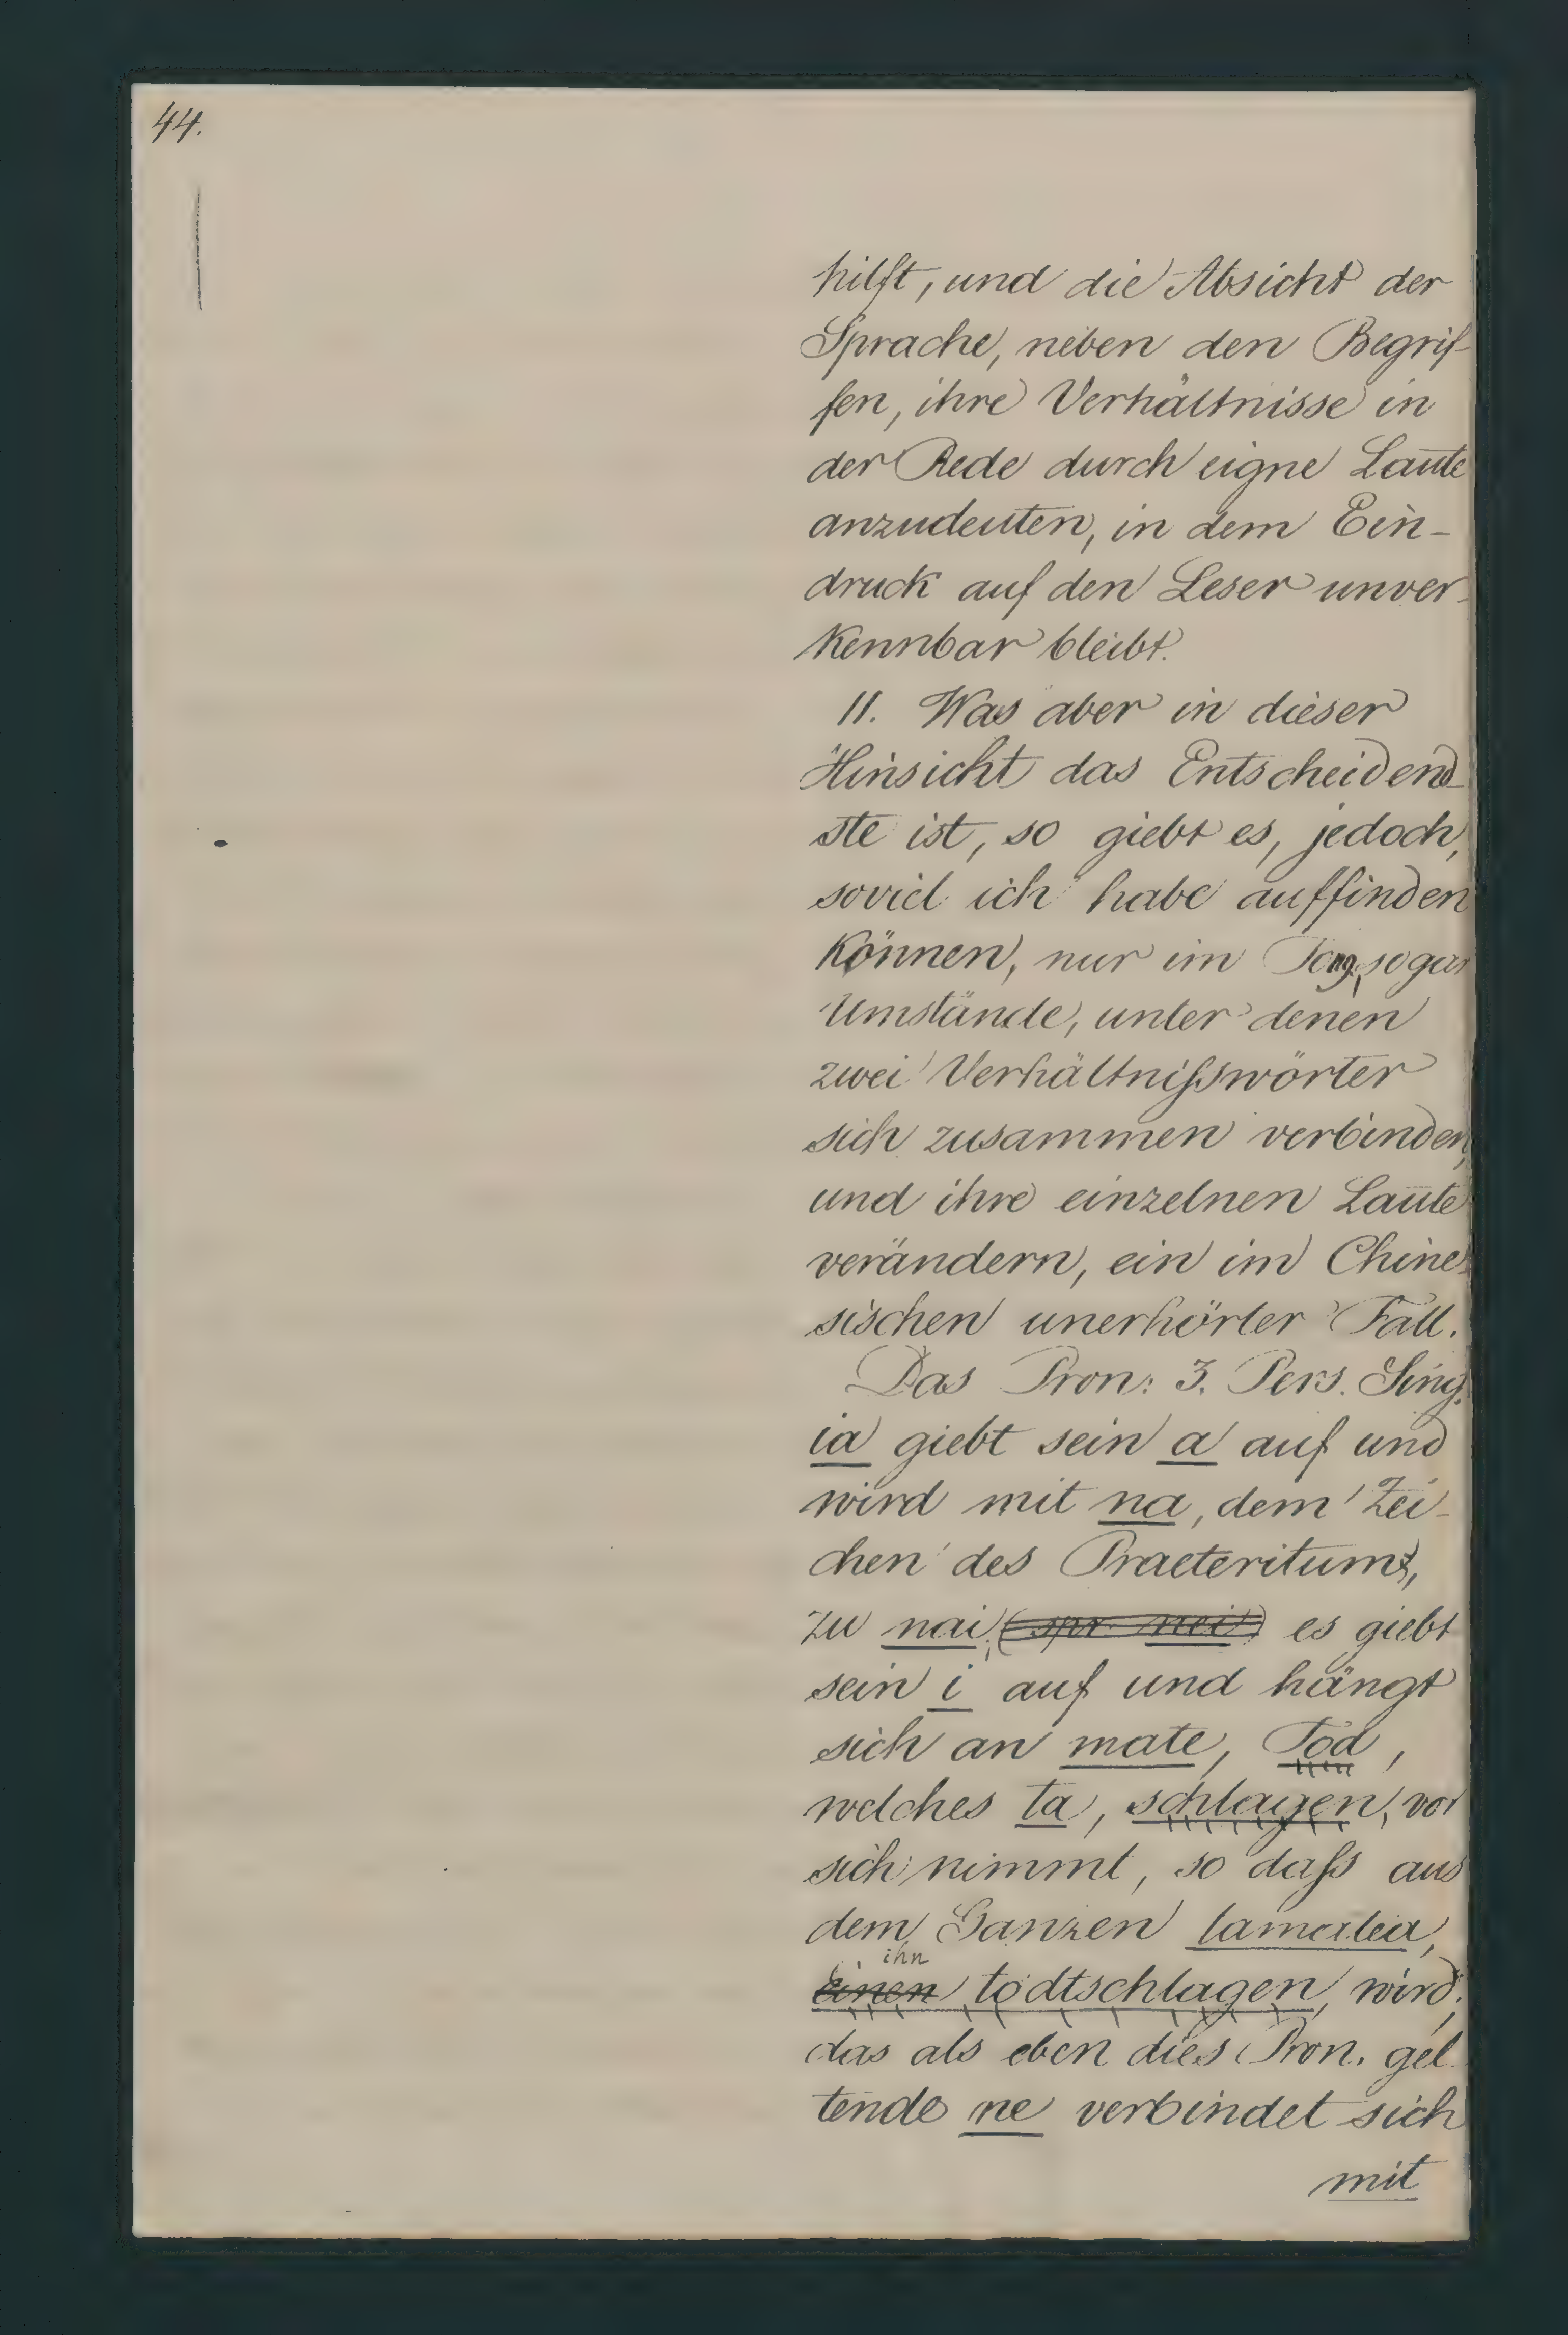 44.
hilft, und die Absicht der
Sprache, neben den Begrif-
fen, ihre Verhältnisse in
der Rede durch eigne Laute
anzudeuten, in dem Ein-
druck auf den Leser unver-
kennbar bleibt.
11. Was aber in dieser
Hinsicht das Entscheidend-
ste ist, so giebt es, jedoch,
soviel ich habe auffinden
können, nur im Tong. sogar
Umstände, unter denen
zwei Verhältnißwörter
sich zusammen verbinden,
und ihre einzelnen Laute
verändern, ein im Chine-
sischen unerhörter Fall.
Das Pron: 3. Pers. Sing.
ia giebt sein a auf und
wird mit na, dem Zei-
chen des Praeteritums,
zu nai, (spr. nei) es giebt
sein i auf und hängt
sich an mate, Tod,
welches ta, schlagen, vor
sich nimmt, so daß aus
dem Ganzen tamatea,
ihn
einen todtschlagen, wird;
das als eben dies Pron. gel-
tende ne verbindet sich
mit